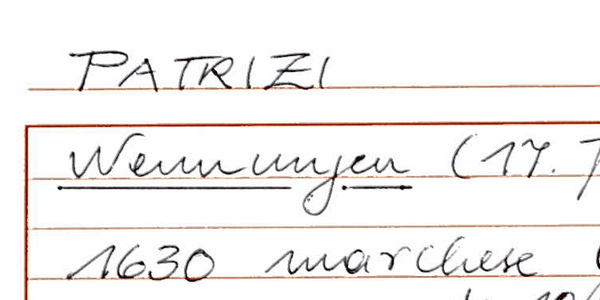 PATRIZI
Nennungen (17.
1630 marchese